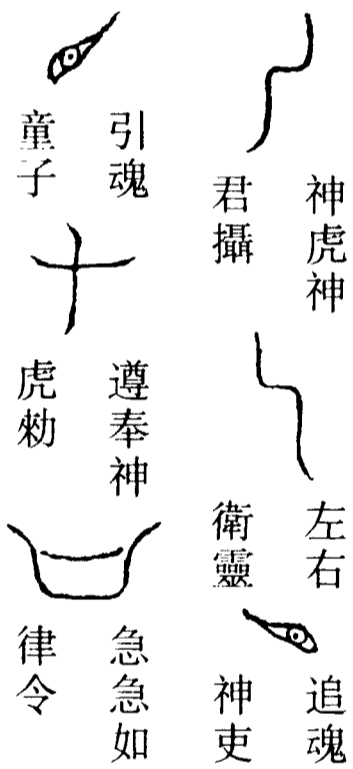 神虎神
君攝
左右
衛靈
追魂
神吏
引魂
童子
遵奉神
虎勑
急急如
律令